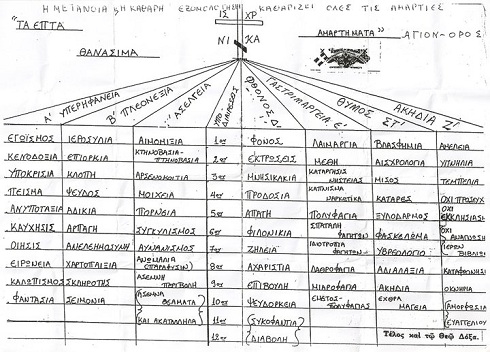 Η ΜΕΤΑΝΟΙΑ Κ Η ΚΑΘΑΡΗ ΕΞΟΜΟΛΟΓΗΣΗ ΚΑΘΑΡΙΖΕΙ ΟΛΕΣ ΤΙΣ ΑΜΑΡΤΙΕΣ
ΙΣ ΧΡ
"ΤΑ ΕΠΤΑ ΝΙ ΚΑ ΑΜΑΡΤΗΜΑΤΑ" ΑΓΙΟΝ-ΟΡΟΣ
ΘΑΝΑΣΙΜΑ
Α' ΥΠΕΡΗΦΑΝΕΙΑ Β' ΠΛΕΟΝΕΞΙΑ ΑΣΕΛΓΕΙΑ ΥΠΟ-ΔΙΑΙΡΕΣΕΩΣ ΦΘΟΝΟΣ Δ' ΓΑΣΤΡΙΜΑΡΓΕΙΑ Ε' ΘΥΜΟΣ ΣΤ' ΑΚΗΔΙΑ Ζ'
ΕΓΩΪΣΜΟΣ ΙΕΡΟΣΥΛΙΑ ΑΙΜΟΜΙΞΙΑ 1ον ΦΟΝΟΣ ΛΑΙΜΑΡΓΙΑ ΒΛΑΣΦΗΜΙΑ ΑΜΕΛΕΙΑ
ΚΕΝΟΔΟΞΙΑ ΕΠΙΟΡΚΙΑ ΚΤΗΝΟΒΑΣΙΑ-ΠΤΗΝΟΒΑΣΙΑ 2ον ΕΚΤΡΩΣΕΙΣ ΜΕΘΗ ΑΙΣΧΡΟΛΟΓΙΑ ΥΠΝΗΛΙΑ
ΥΠΟΚΡΙΣΙΑ ΚΛΟΠΗ ΑΡΣΕΝΟΚΟΙΤΙΑ 3ον ΜΝΗΣΙΚΑΚΙΑ ΚΑΤΑΡΓΗΣΙΣ ΝΗΣΤΕΙΑΣ ΜΙΣΟΣ ΤΕΜΠΕΛΙΑ
ΠΕΙΣΜΑ ΨΕΥΔΟΣ ΜΟΙΧΕΙΑ 4ον ΠΡΟΔΟΣΙΑ ΚΑΠΝΙΣΜΑ ΝΑΡΚΩΤΙΚΑ ΚΑΤΑΡΕΣ ΟΧΙ ΠΡΟΣΕΥΧ
ΑΝΥΠΟΤΑΞΙΑ ΑΔΙΚΙΑ ΠΟΡΝΕΙΑ 5ον ΑΠΑΤΗ ΠΟΛΥΦΑΓΙΑ ΞΥΛΟΔΑΡΜΟΣ ΟΧΙ ΕΚΚΛΗΣΙΑΣ
ΚΑΥΧΗΣΙΣ ΑΡΠΑΓΗ 6ον ΦΙΛΟΝΙΚΙΑ ΣΠΑΤΑΛΗ ΦΑΓΗΤΩΝ ΦΑΣΚΕΛΩΜΑ ΟΧΙ ΑΝΑΓΝΩΣΗ
ΟΙΗΣΙΣ ΑΝΕΛΕΗΜΟΣΥΝΗ ΑΥΝΑΝΙΣΜΟΣ 7ον ΖΗΛΕΙΑ ΦΑΓΗΤΩΝ ΥΒΡΕΟΛΟΓΙΟ ΙΕΡΩΝ ΒΙΒΛΙΩΝ
ΕΙΡΩΝΕΙΑ ΧΑΡΤΟΠΑΙΞΙΑ ΑΝΩΜΑΛΙΑ 8ον ΑΧΑΡΙΣΤΙΑ ΛΑΘΡΟΦΑΓΙΑ ΑΔΙΑΛΑΞΙΑ
ΚΑΛΩΠΙΣΜΟΣ ΣΚΛΗΡΟΤΗΣ ΑΣΕΜΝΗ 9ον ΕΠΙΒΟΥΛΗ ΜΙΑΡΟΦΑΓΙΑ ΑΚΗΔΙΑ ΟΚΝΗΡΙΑ
ΦΑΝΤΑΣΙΑ ΣΕΙΜΟΝΙΑ ΑΣΕΜΝΑ ΘΕΑΜΑΤΑ 10ον ΨΕΥΔΟΡΚΕΙΑ ΕΧΘΡΑ ΜΑΓΕΙΑ
ΚΑΙ ΑΚΑΤΑΛΗΛΑ 11ον (ΣΥΚΟΦΑΝΤΙΑ ΕΥΑΓΓΕΛΙΟΥ
12ον (ΔΙΑΒΟΛΗ) Τέλος καὶ τῷ Θεῷ Δόξα.